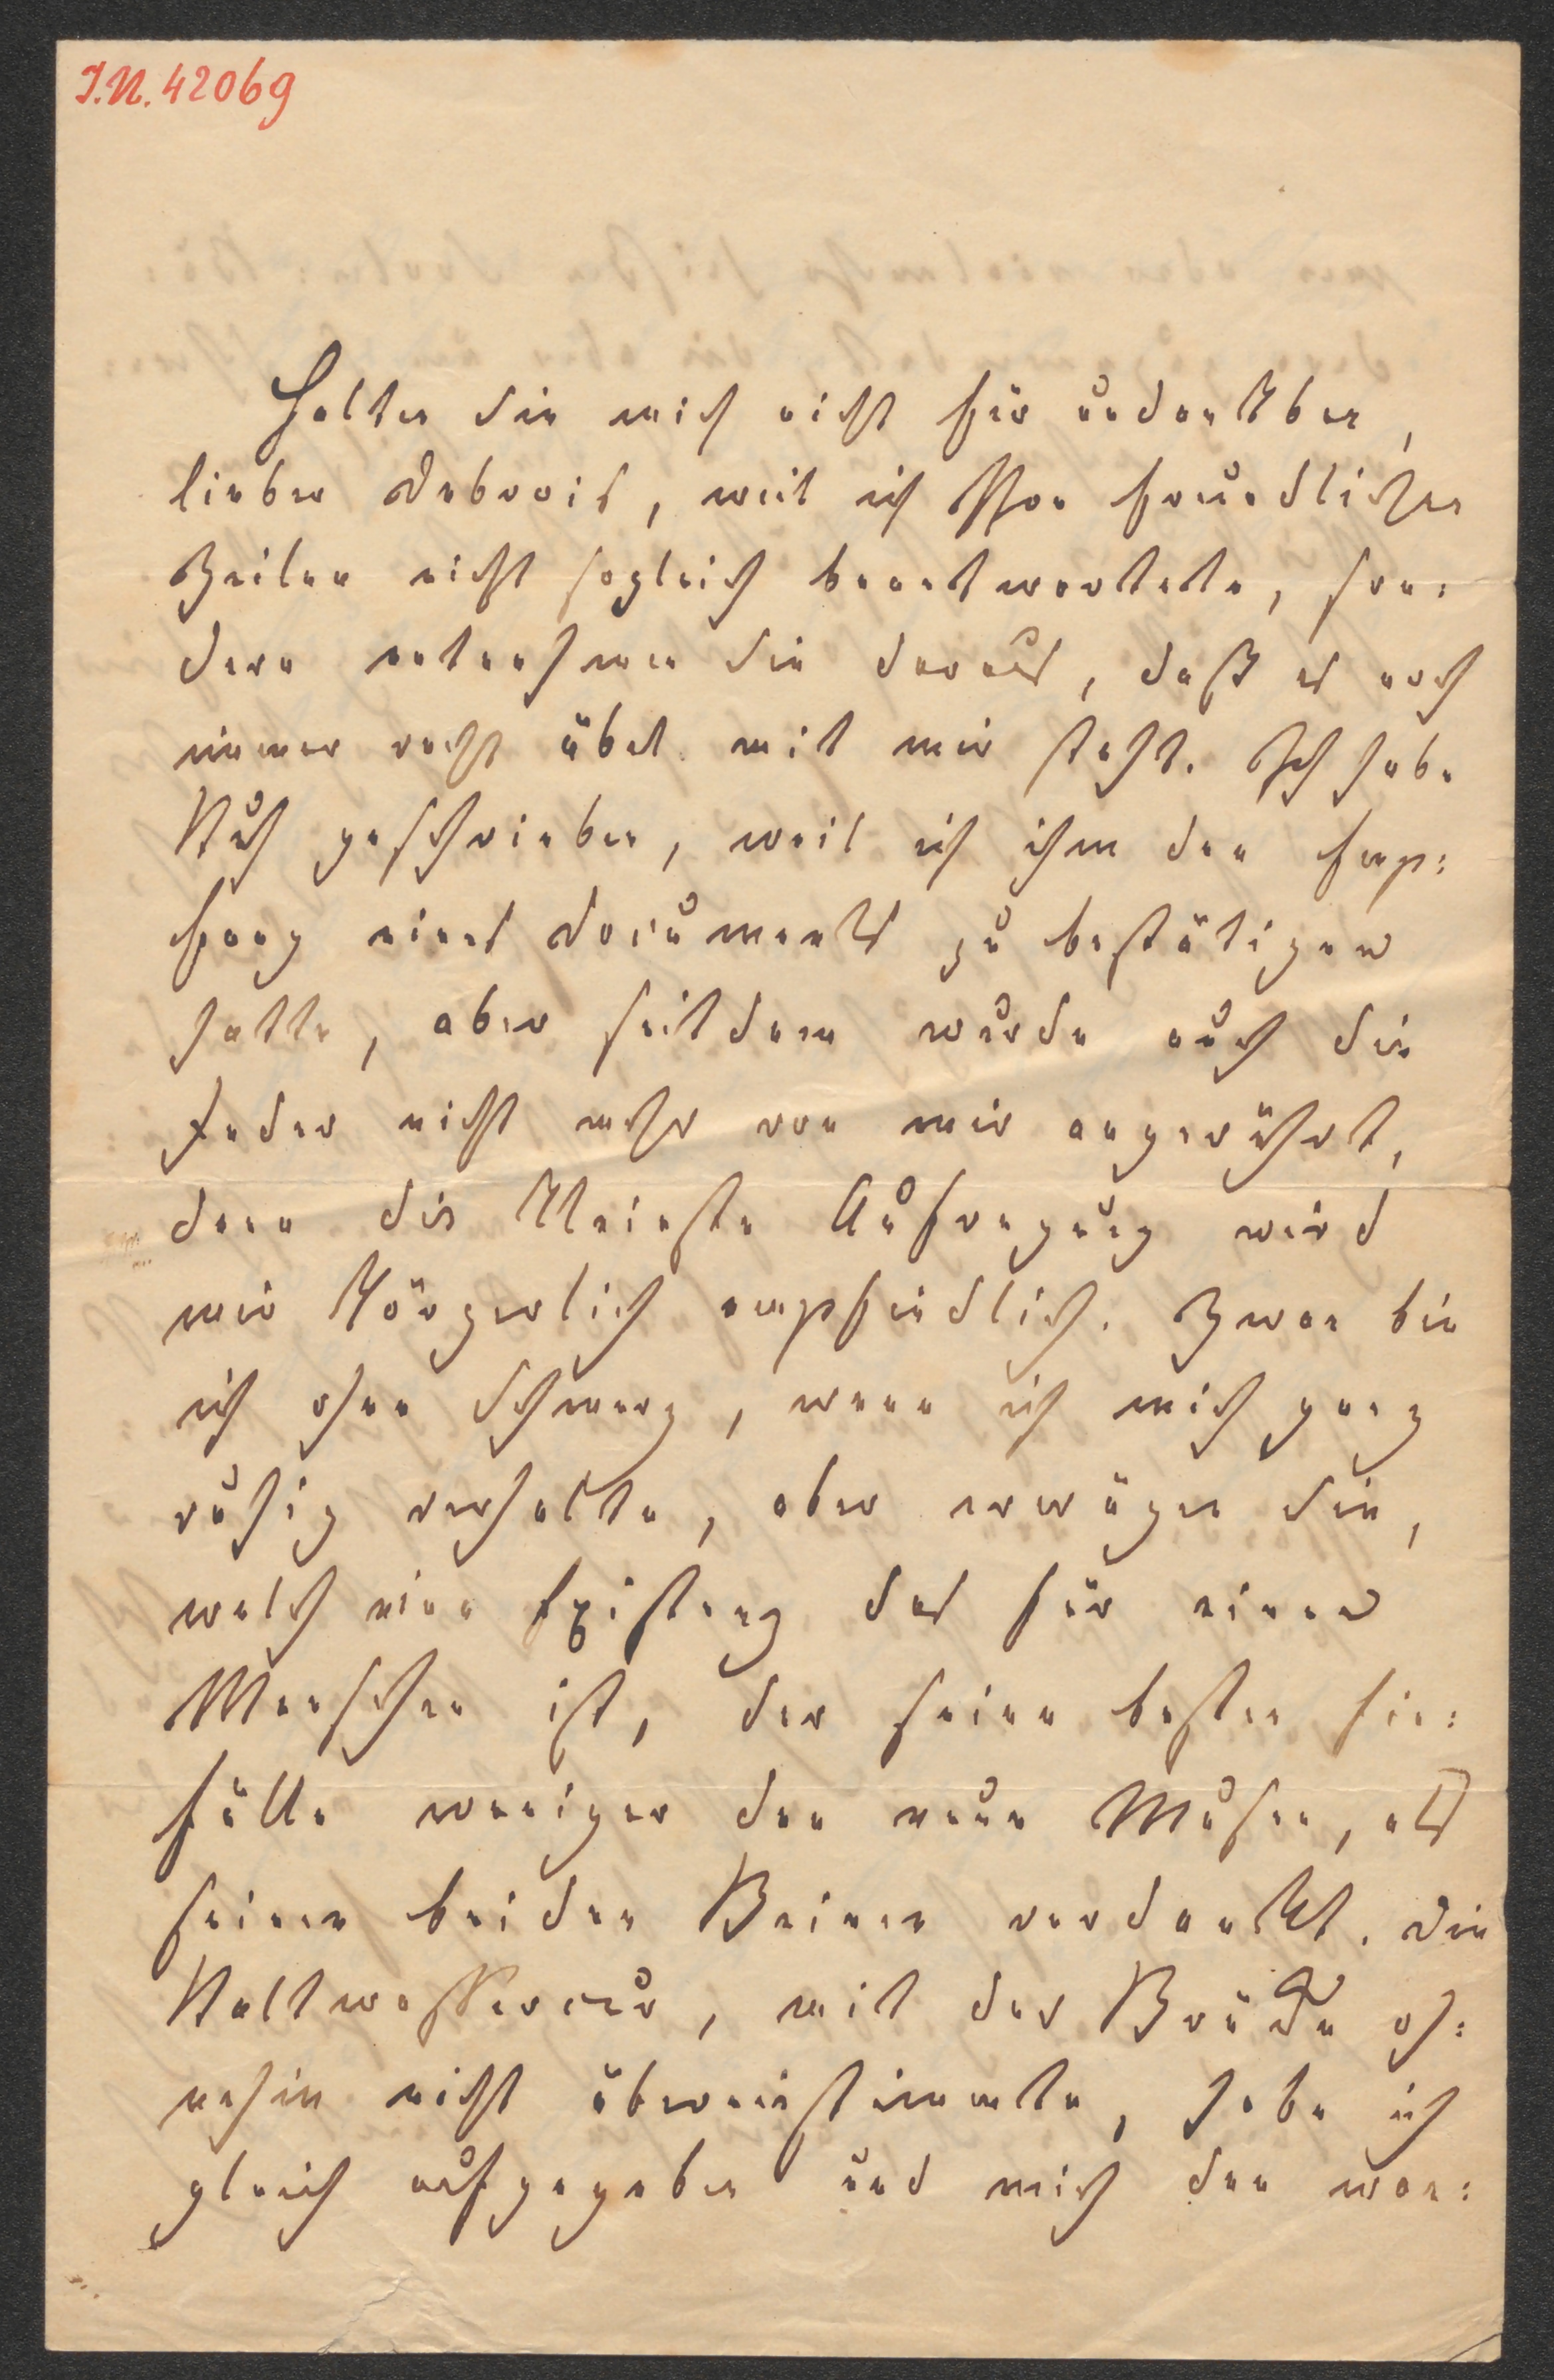 I.N. 42069
Halten Sie mich nicht für undankbar,
lieber Debrois, weil ich Ihre freundlichen
Zeilen nicht sogleich beantwortete, son:
dern entnehmen Sie daraus, daß es noch
immer recht übel mit mir steht. Ich habe
Kuh geschrieben, weil ich ihm den Emp:
fang eines Documents zu bestätigen
hatte, aber seitdem wurde auch die
Feder nicht mehr von mir angerührt,
denn die kleinste Aufregung wird
mir körperlich empfindlich. Zwar bin
ich ohne Schmerz, wenn ich mich ganz
ruhig verhalte, aber erwägen Sie,
welch eine Existenz das für einen
Menschen ist, der seine besten Ein:
fälle weniger den neun Musen, als
seinen beiden Beinen verdankt. Die
Kaltwassercur, mit der Brücke oh:
nehin nicht übereinstimmte, habe ich
gleich aufgegeben und mich den war: